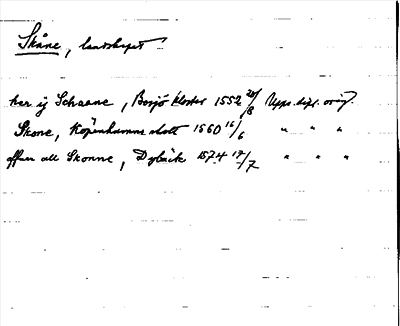 Skåne, landskapet
her ij Schaane, Bosjö kloster 1552 20/8 Upps. dipl. orig.
Skone, Köpenhamns slott 1560 16/6 " " "
offuer all Skonne, Dybäck 1574 17/7 " " "